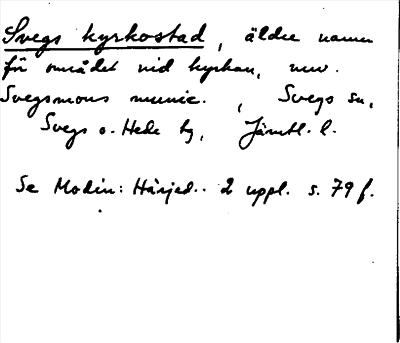 Svegs kyrkostad, äldre namn
för området vid kyrkan, nuv.
Svegsmons munic., Svegs sn,
Svegs o. Hede tg, Jämtl. l.
Se Modin: Härjed.. 2 uppl. s. 79 f.